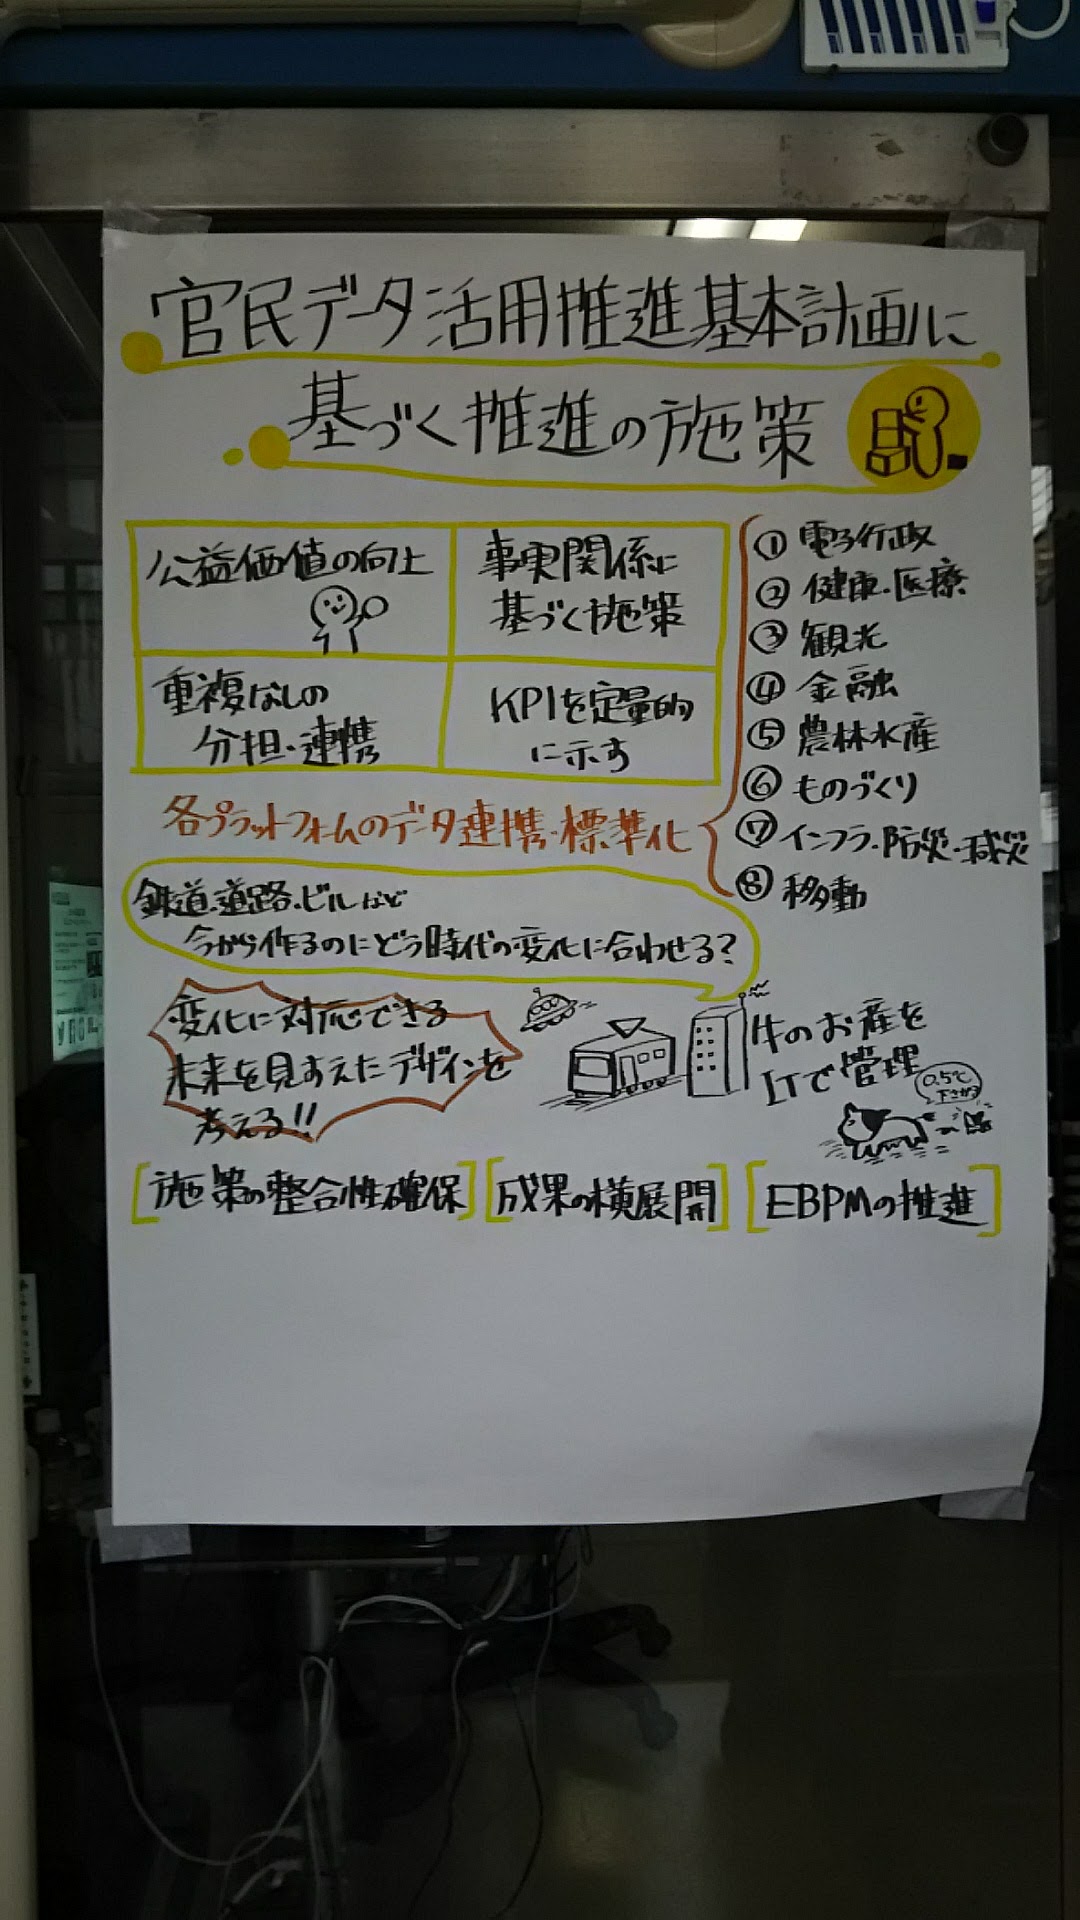 官民データ活用推進基本計画に
基づく推進の施策
公益価値の向上
事実関係に
基づく施策
重複なしの
分担・連携
KPIを定量的
に示す
各プラットフォームのデータ連携・標準化
① 電子行政
② 健康・医療
③ 観光
④ 金融
⑤ 農林水産
⑥ ものづくり
⑦ インフラ・防災・減災
⑧ 移動
鉄道・道路・ビルなど
今から作るのにどう時代の変化に合わせる?
変化に対応できる
未来を見すえたデザインを
考える!!
牛のお産を
ITで管理
0.5℃
下さがる
[施策の整合性確保] [成果の横展開] [EBPMの推進]